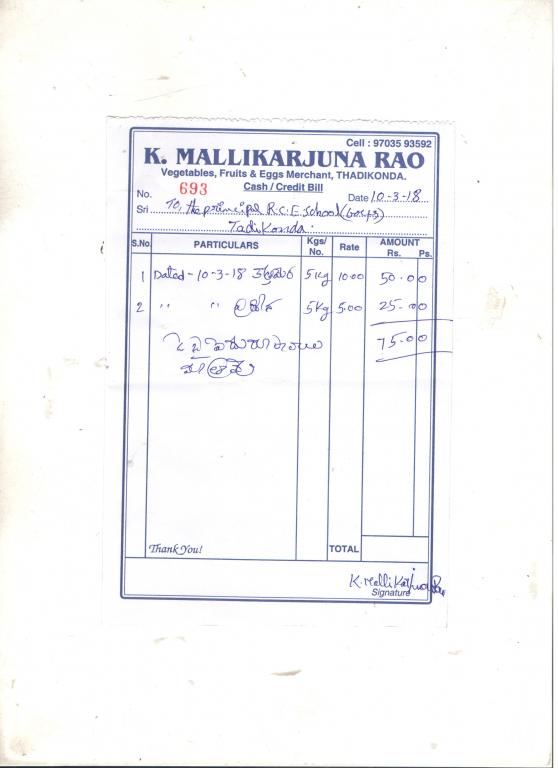 Cell : 97035 93592
K. MALLIKARJUNA RAO
Vegetables, Fruits & Eggs Merchant, THADIKONDA.
Cash / Credit Bill
No. 693 Date 10-3-18
Sri To, the principal R.C.E. School (Boys)
Tadikonda.
S.No. PARTICULARS Kgs/No. Rate AMOUNT Rs. Ps.
1 Dated - 10-3-18 5 Kg 10.00 50.00
2 " " 5 Kg 5.00 25-00
75-00
Thank You! TOTAL
K. Mallikarjuna Rao
Signature